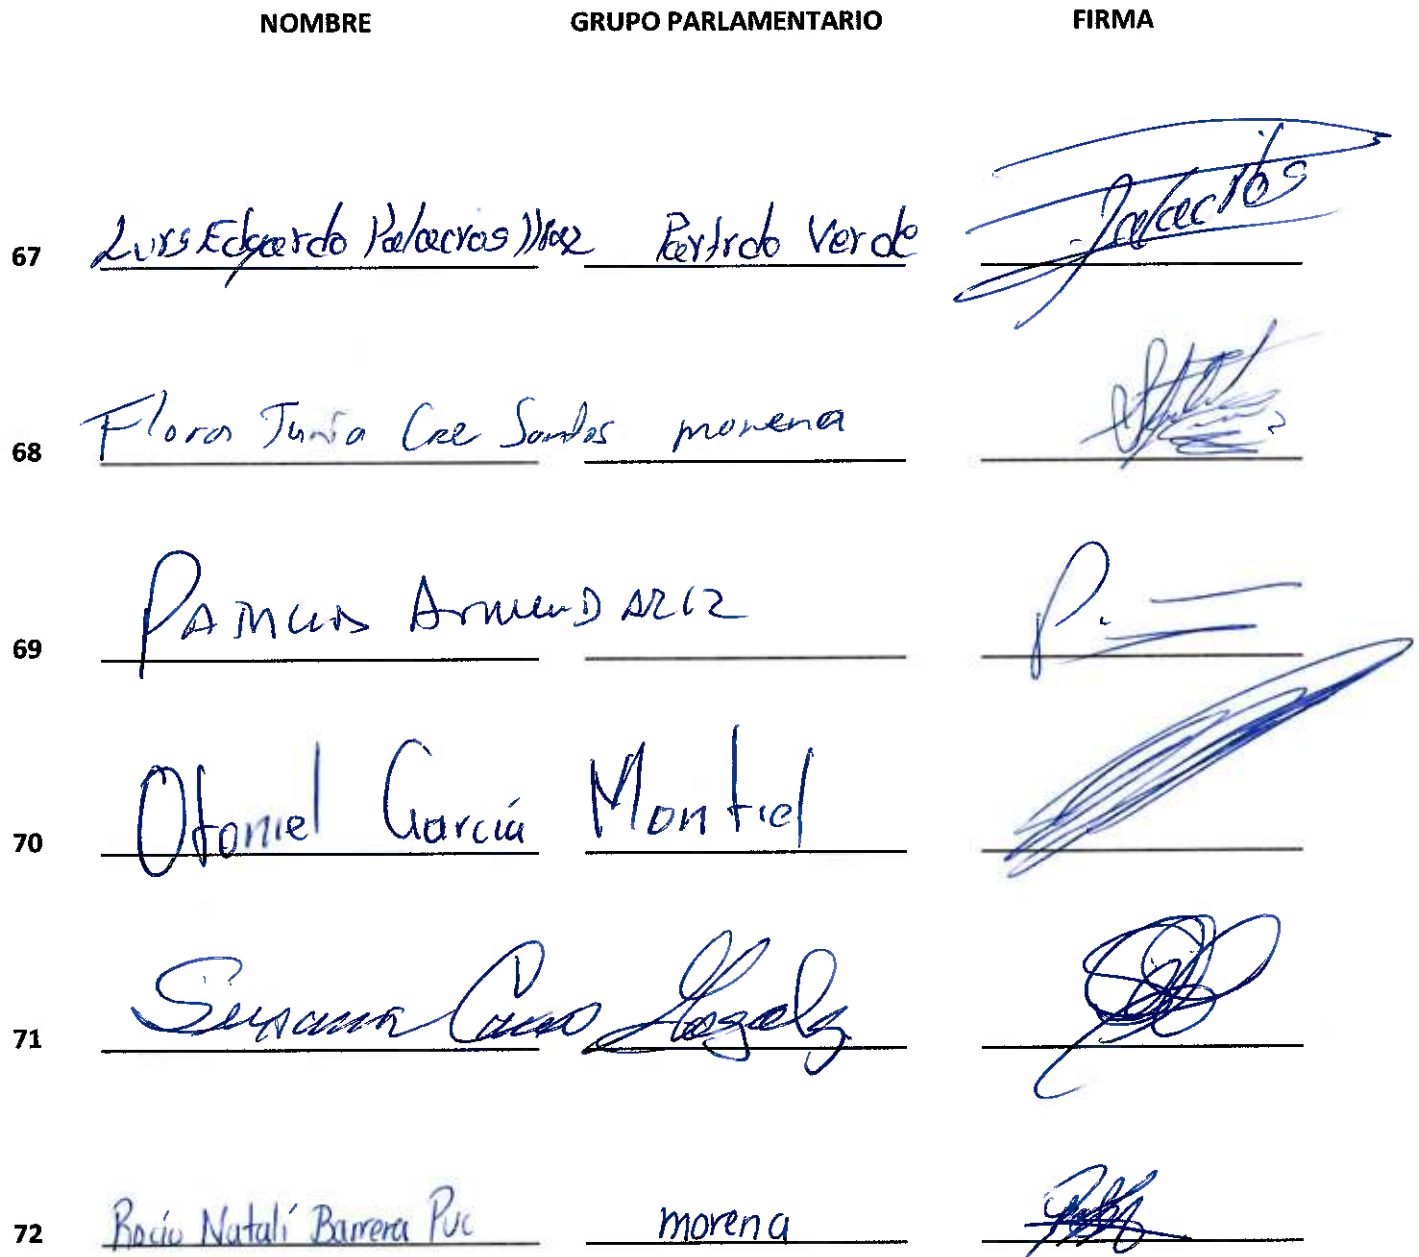 NOMBRE GRUPO PARLAMENTARIO FIRMA
67 Luis Edgardo Palacios Partido Verde Palacios
68 Flora Tania Cruz Santos morena
69 Patricia Armendariz
70 Otoniel García Montiel
71 Susana Cano
72 Rocío Natalí Barrera Puc morena